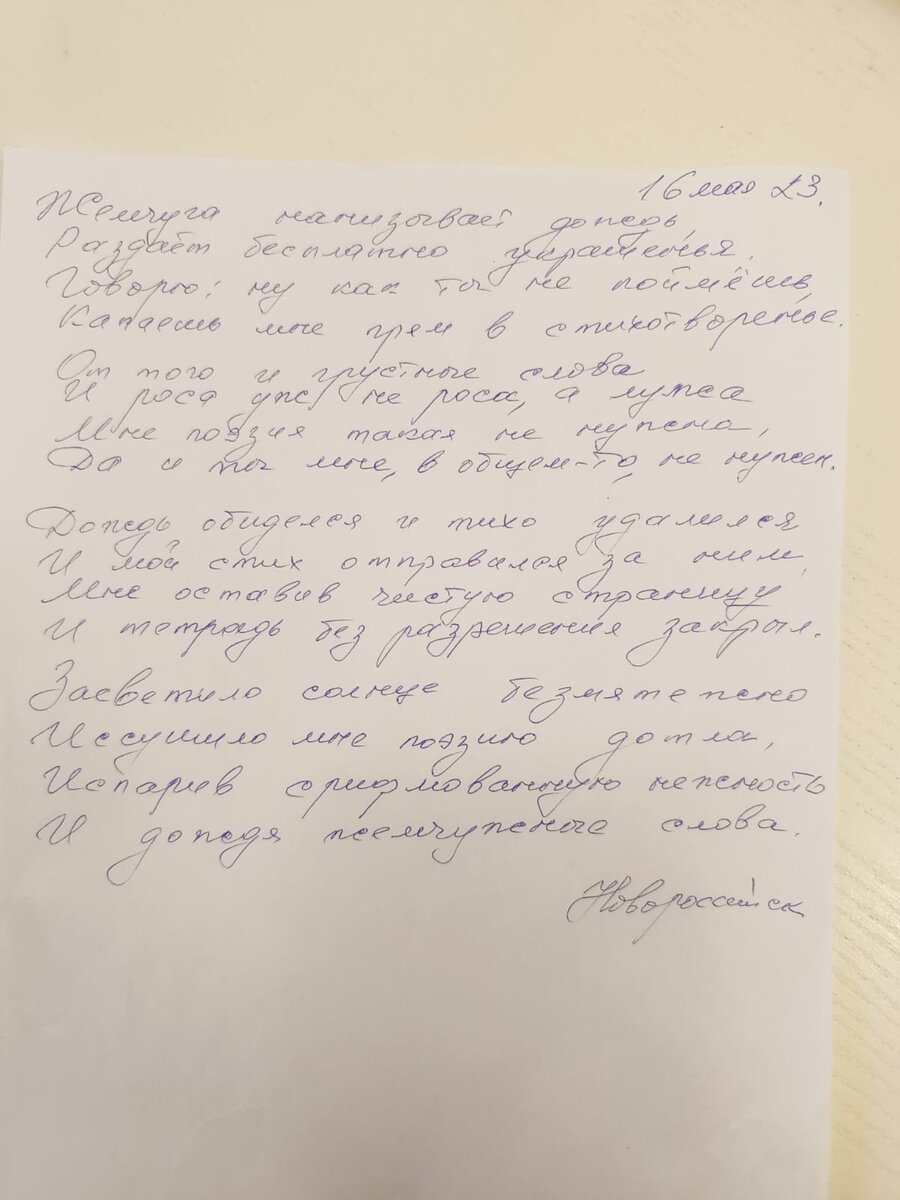 16 мая 23.
Жемчуга нанизывает дождь,
Раздаёт бесплатно украшенья.
Говорю: ну как ты не поймёшь,
Капаешь мне прям в стихотворенье.
От того и грустные слова
И роса уж не роса, а лужа
Мне поэзия такая не нужна,
Да и ты мне, в общем-то, не нужен.
Дождь обиделся и тихо удалился
И мой стих отправился за ним,
Мне оставив чистую страницу
И тетрадь без разрешения закрыл.
Засветило солнце безмятежно
Иссушило мне поэзию дотла,
Испарив срифмованную нежность
И дождя жемчужные слова.
Новороссийск